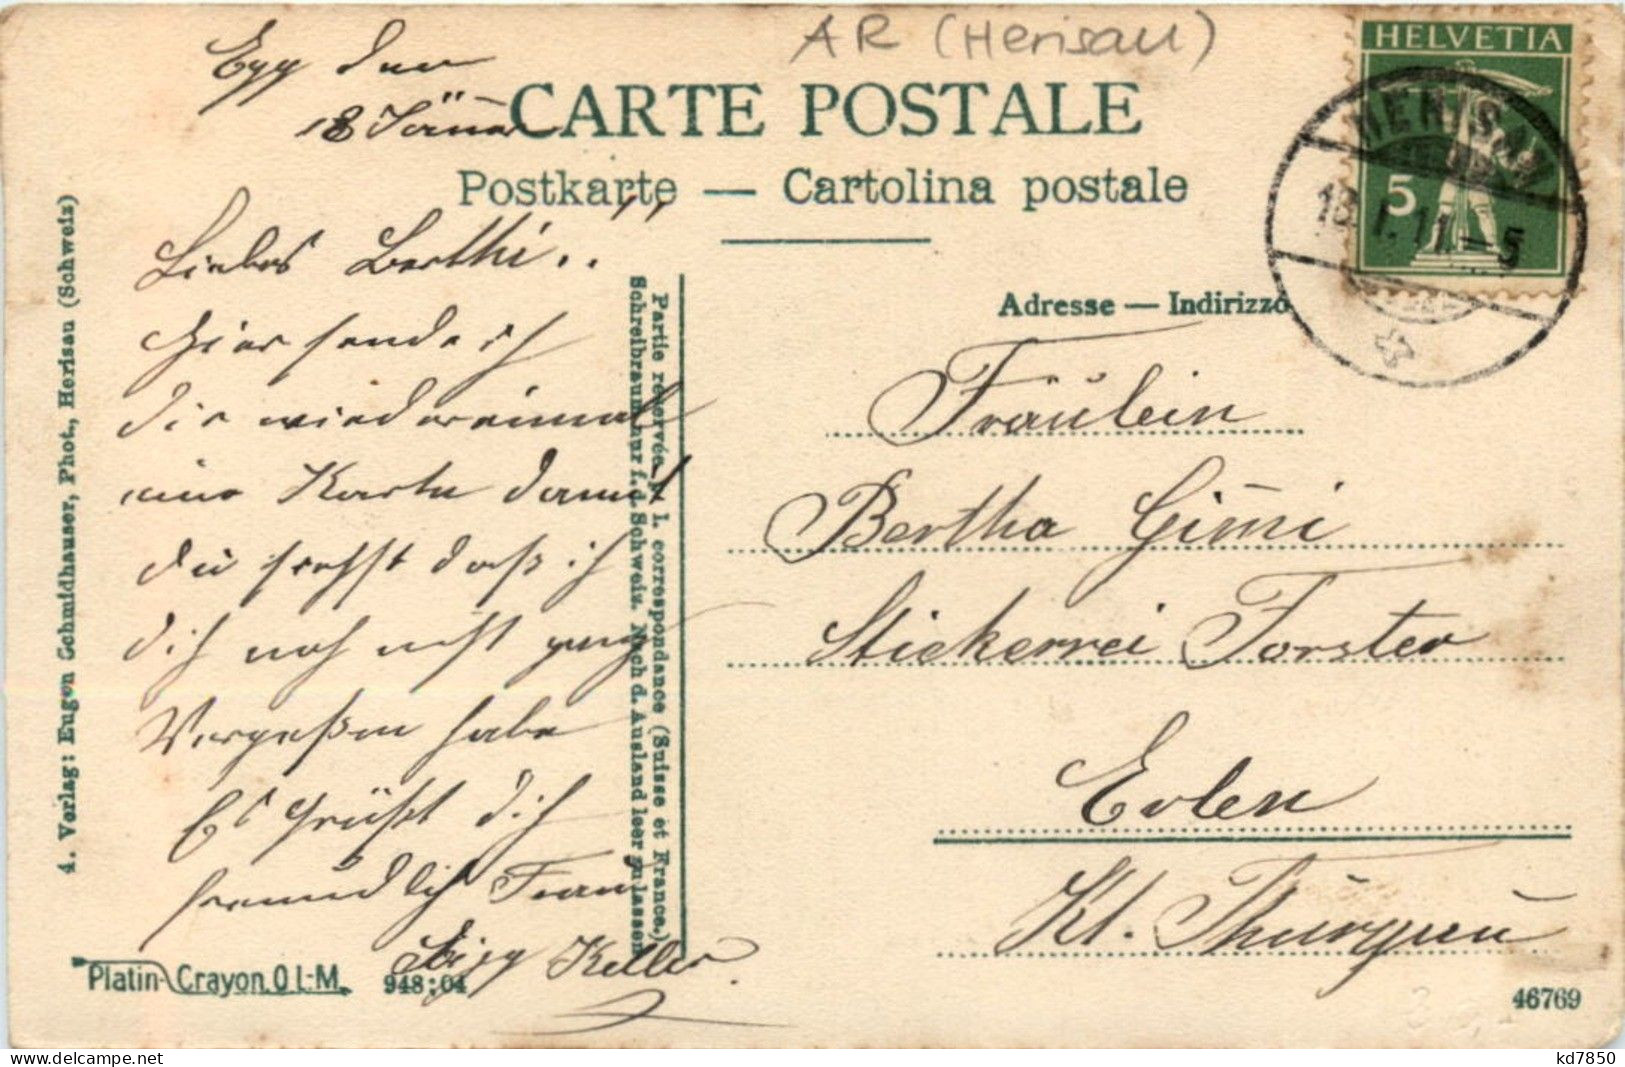 AR (Herisau)
Egg den
18 Jänner
CARTE POSTALE
Postkarte — Cartolina postale
HELVETIA
5
HERISAU
18.I.11.–5
Liebes Berthi!!
Hier sende ich
dir wiedereinmal
eine Karte damit
du sehst daß ich
dich noch nicht ganz
Vergeßen habe
Es Grüßt dich
freundlich
Keller
Adresse — Indirizzo
Fräulein
Bertha Gimi
Stickerrei Forster
Erlen
Kt. Thurgau
Partie réservée à l. correspondance (Suisse et France.)
Schreibraum nur f. d. Schweiz. Nach d. Ausland leer zu lassen
4. Verlag: Eugen Schmidhauser, Phot., Herisau (Schweiz)
Platin-Crayon O L-M.
948:04
46769
www.delcampe.net
kd7850